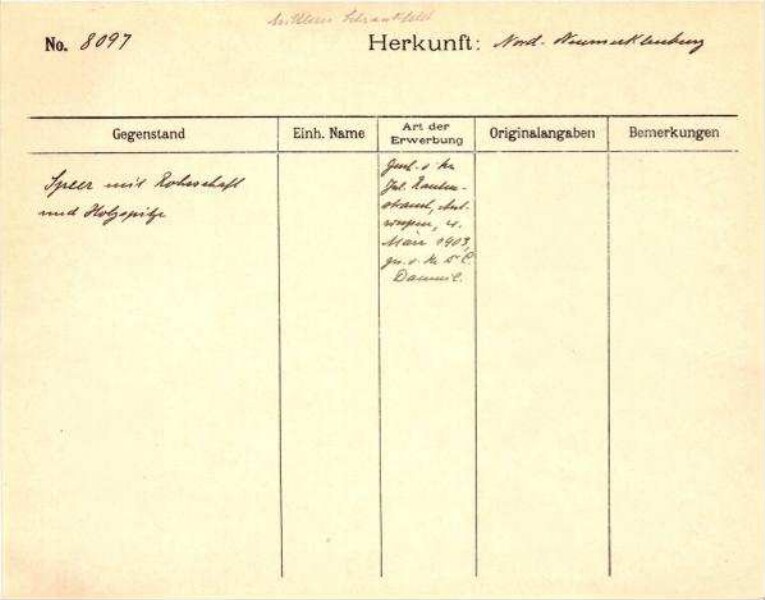 Mittleres Schrankfeld
No. 8097 Herkunft: Nord-Neumecklenburg
Gegenstand Einh. Name Art der Erwerbung Originalangaben Bemerkungen
Speer mit Rohrschaft
und Holzspitze
Gesch. v. Hn
Jul. Rauten-
strauch, Ant-
werpen, 4.
März 1903,
ges. v. Hn Dr C.